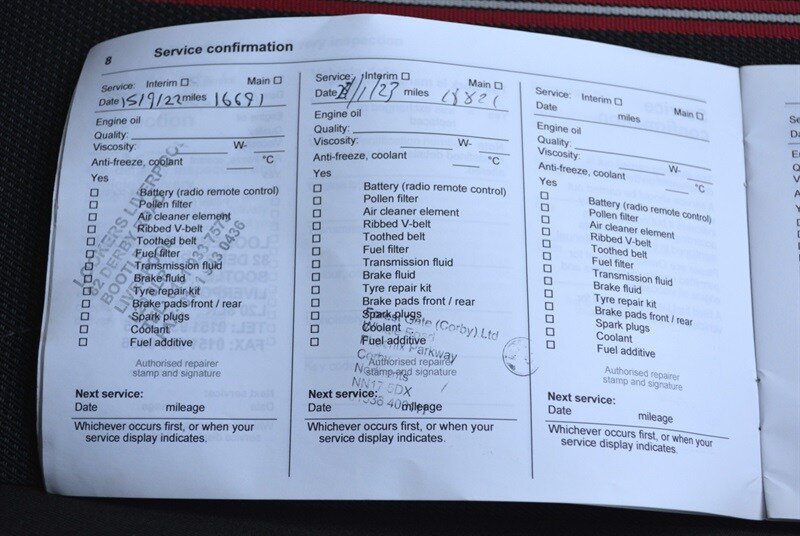 8 Service confirmation
Service: Interim ☐ Main ☐
Date 15/9/22 miles 16691
Engine oil
Quality:
Viscosity: W-
Anti-freeze, coolant °C
Yes
☐ Battery (radio remote control)
☐ Pollen filter
☐ Air cleaner element
☐ Ribbed V-belt
☐ Toothed belt
☐ Fuel filter
☐ Transmission fluid
☐ Brake fluid
☐ Tyre repair kit
☐ Brake pads front / rear
☐ Spark plugs
☐ Coolant
☐ Fuel additive
LOOKERS LIVERPOOL
Authorised repairer
stamp and signature
Next service:
Date mileage
Whichever occurs first, or when your
service display indicates.
Service: Interim ☐ Main ☐
Date /1/23 miles 18821
Engine oil
Quality:
Viscosity: W-
Anti-freeze, coolant °C
Yes
☐ Battery (radio remote control)
☐ Pollen filter
☐ Air cleaner element
☐ Ribbed V-belt
☐ Toothed belt
☐ Fuel filter
☐ Transmission fluid
☐ Brake fluid
☐ Tyre repair kit
☐ Brake pads front / rear
☐ Spark plugs
☐ Coolant
☐ Fuel additive
Gate (Corby) Ltd
Parkway
NN17 5DX
Authorised repairer
stamp and signature
Next service:
Date mileage
Whichever occurs first, or when your
service display indicates.
Service: Interim ☐ Main ☐
Date miles
Engine oil
Quality:
Viscosity: W-
Anti-freeze, coolant °C
Yes
☐ Battery (radio remote control)
☐ Pollen filter
☐ Air cleaner element
☐ Ribbed V-belt
☐ Toothed belt
☐ Fuel filter
☐ Transmission fluid
☐ Brake fluid
☐ Tyre repair kit
☐ Brake pads front / rear
☐ Spark plugs
☐ Coolant
☐ Fuel additive
Authorised repairer
stamp and signature
Next service:
Date mileage
Whichever occurs first, or when your
service display indicates.